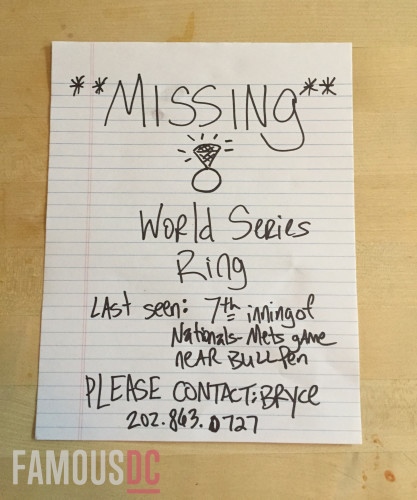 **MISSING**
World Series
Ring
Last seen: 7th inning of
Nationals-Mets game
near Bullpen
PLEASE CONTACT: BRYCE
202.863.0727
FAMOUSDC